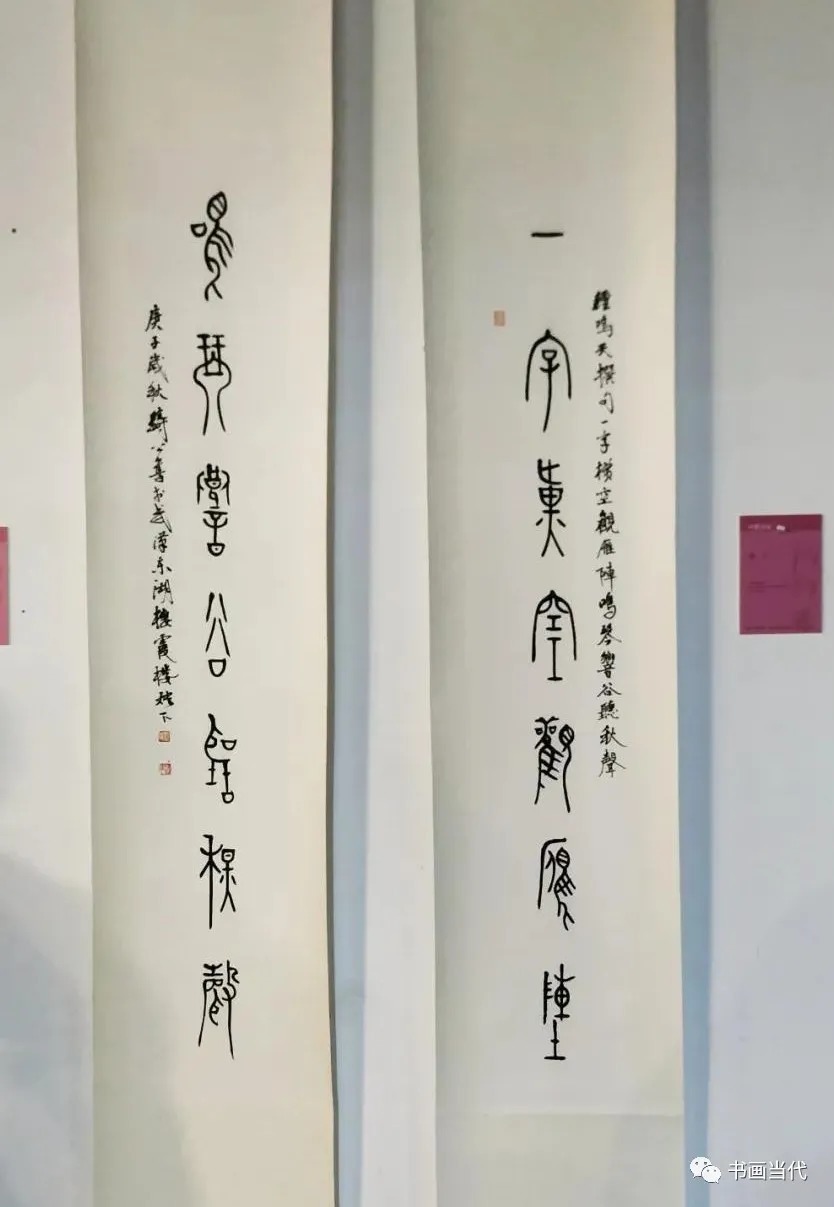 鳴天撰句一字橫空觀雁陣鳴琴響谷聽秋聲
一字橫空觀雁陣
鳴琴響谷聽秋聲
庚子歲秋公善書武漢東湖霞樓燈下
书画当代